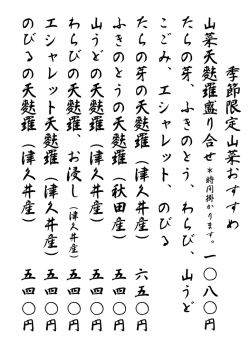 季節限定山菜おすすめ
山菜天麩羅盛り合せ *時間掛かります。 一〇八〇円
たらの芽、ふきのとう、わらび、山うど
こごみ、エシャレット、のびる
たらの芽の天麩羅（津久井産） 六五〇円
ふきのとうの天麩羅（秋田産） 五四〇円
山うどの天麩羅（津久井産） 五四〇円
わらびの天麩羅、お浸し（津久井産） 五四〇円
エシャレット天麩羅（津久井産） 五四〇円
のびるの天麩羅（津久井産） 五四〇円